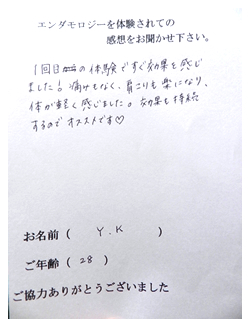 エンダモロジーを体験されての
感想をお聞かせ下さい。
1回目の体験ですぐ効果を感じ
ました!痛みもなく、肩こりも楽になり、
体が軽く感じました。効果も持続
するのでオススメです♡
お名前 ( Y.K )
ご年齢 ( 28 )
ご協力ありがとうございました